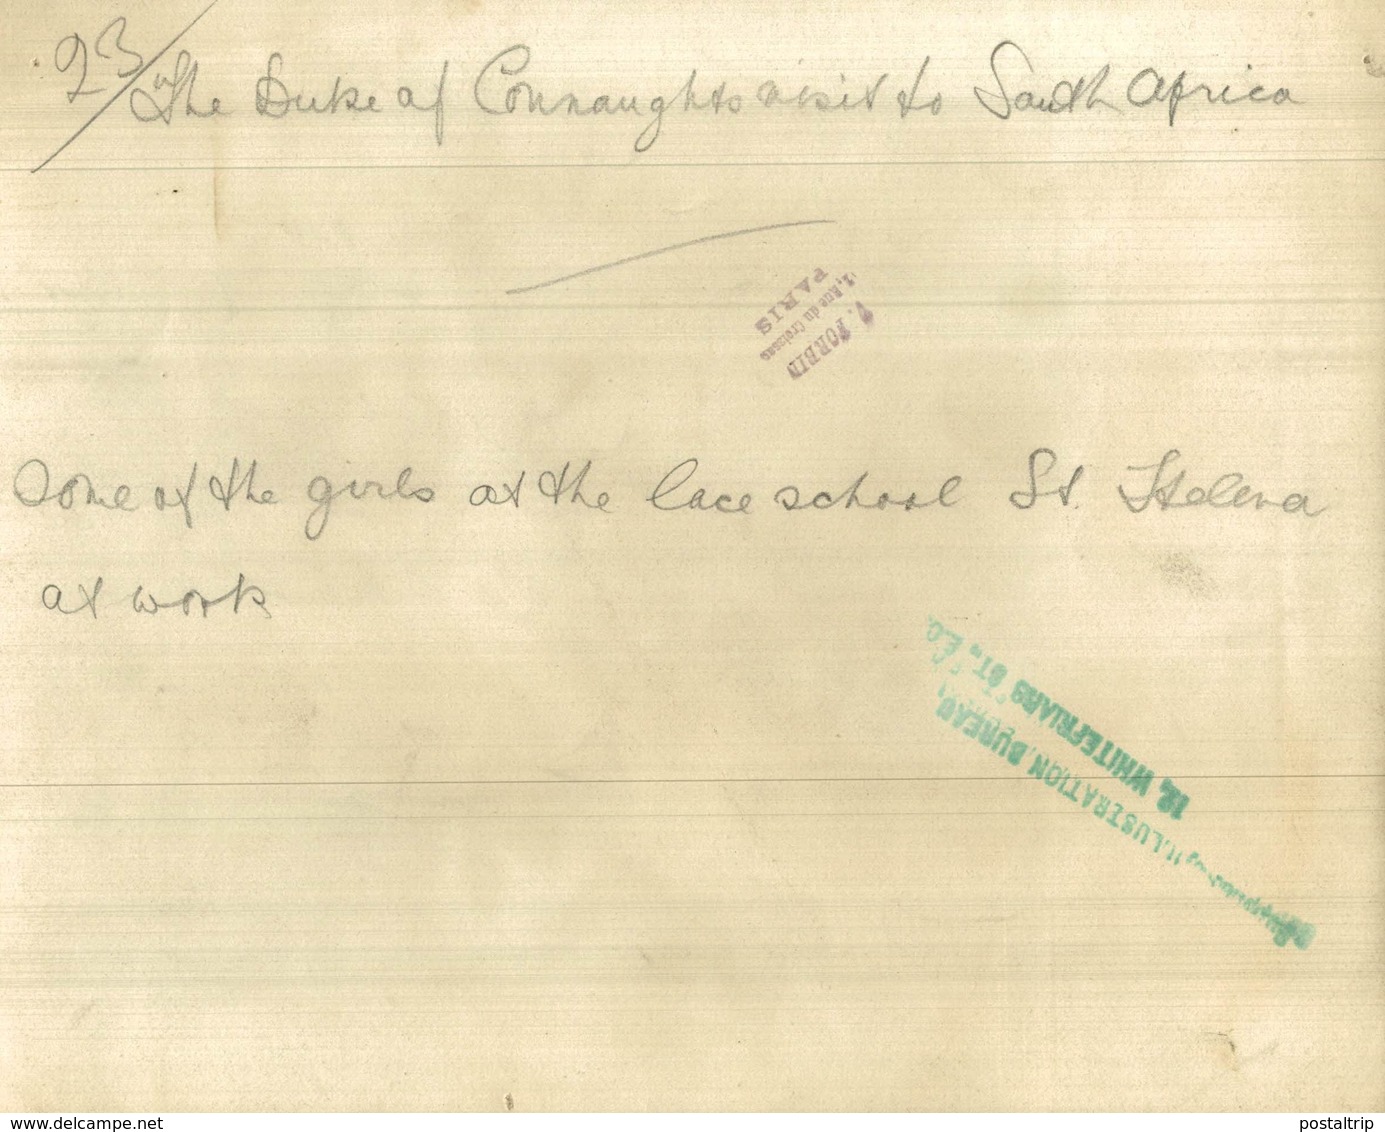 23
The Duke of Connaughts visit to South Africa
V. FORBIN
Rue du Croissant
PARIS
Some of the girls at the lace school St. Helena
at work
ILLUSTRATION BUREAU,
12, WHITEFRIARS ST., E.C.
www.delcampe.net
postaltrip